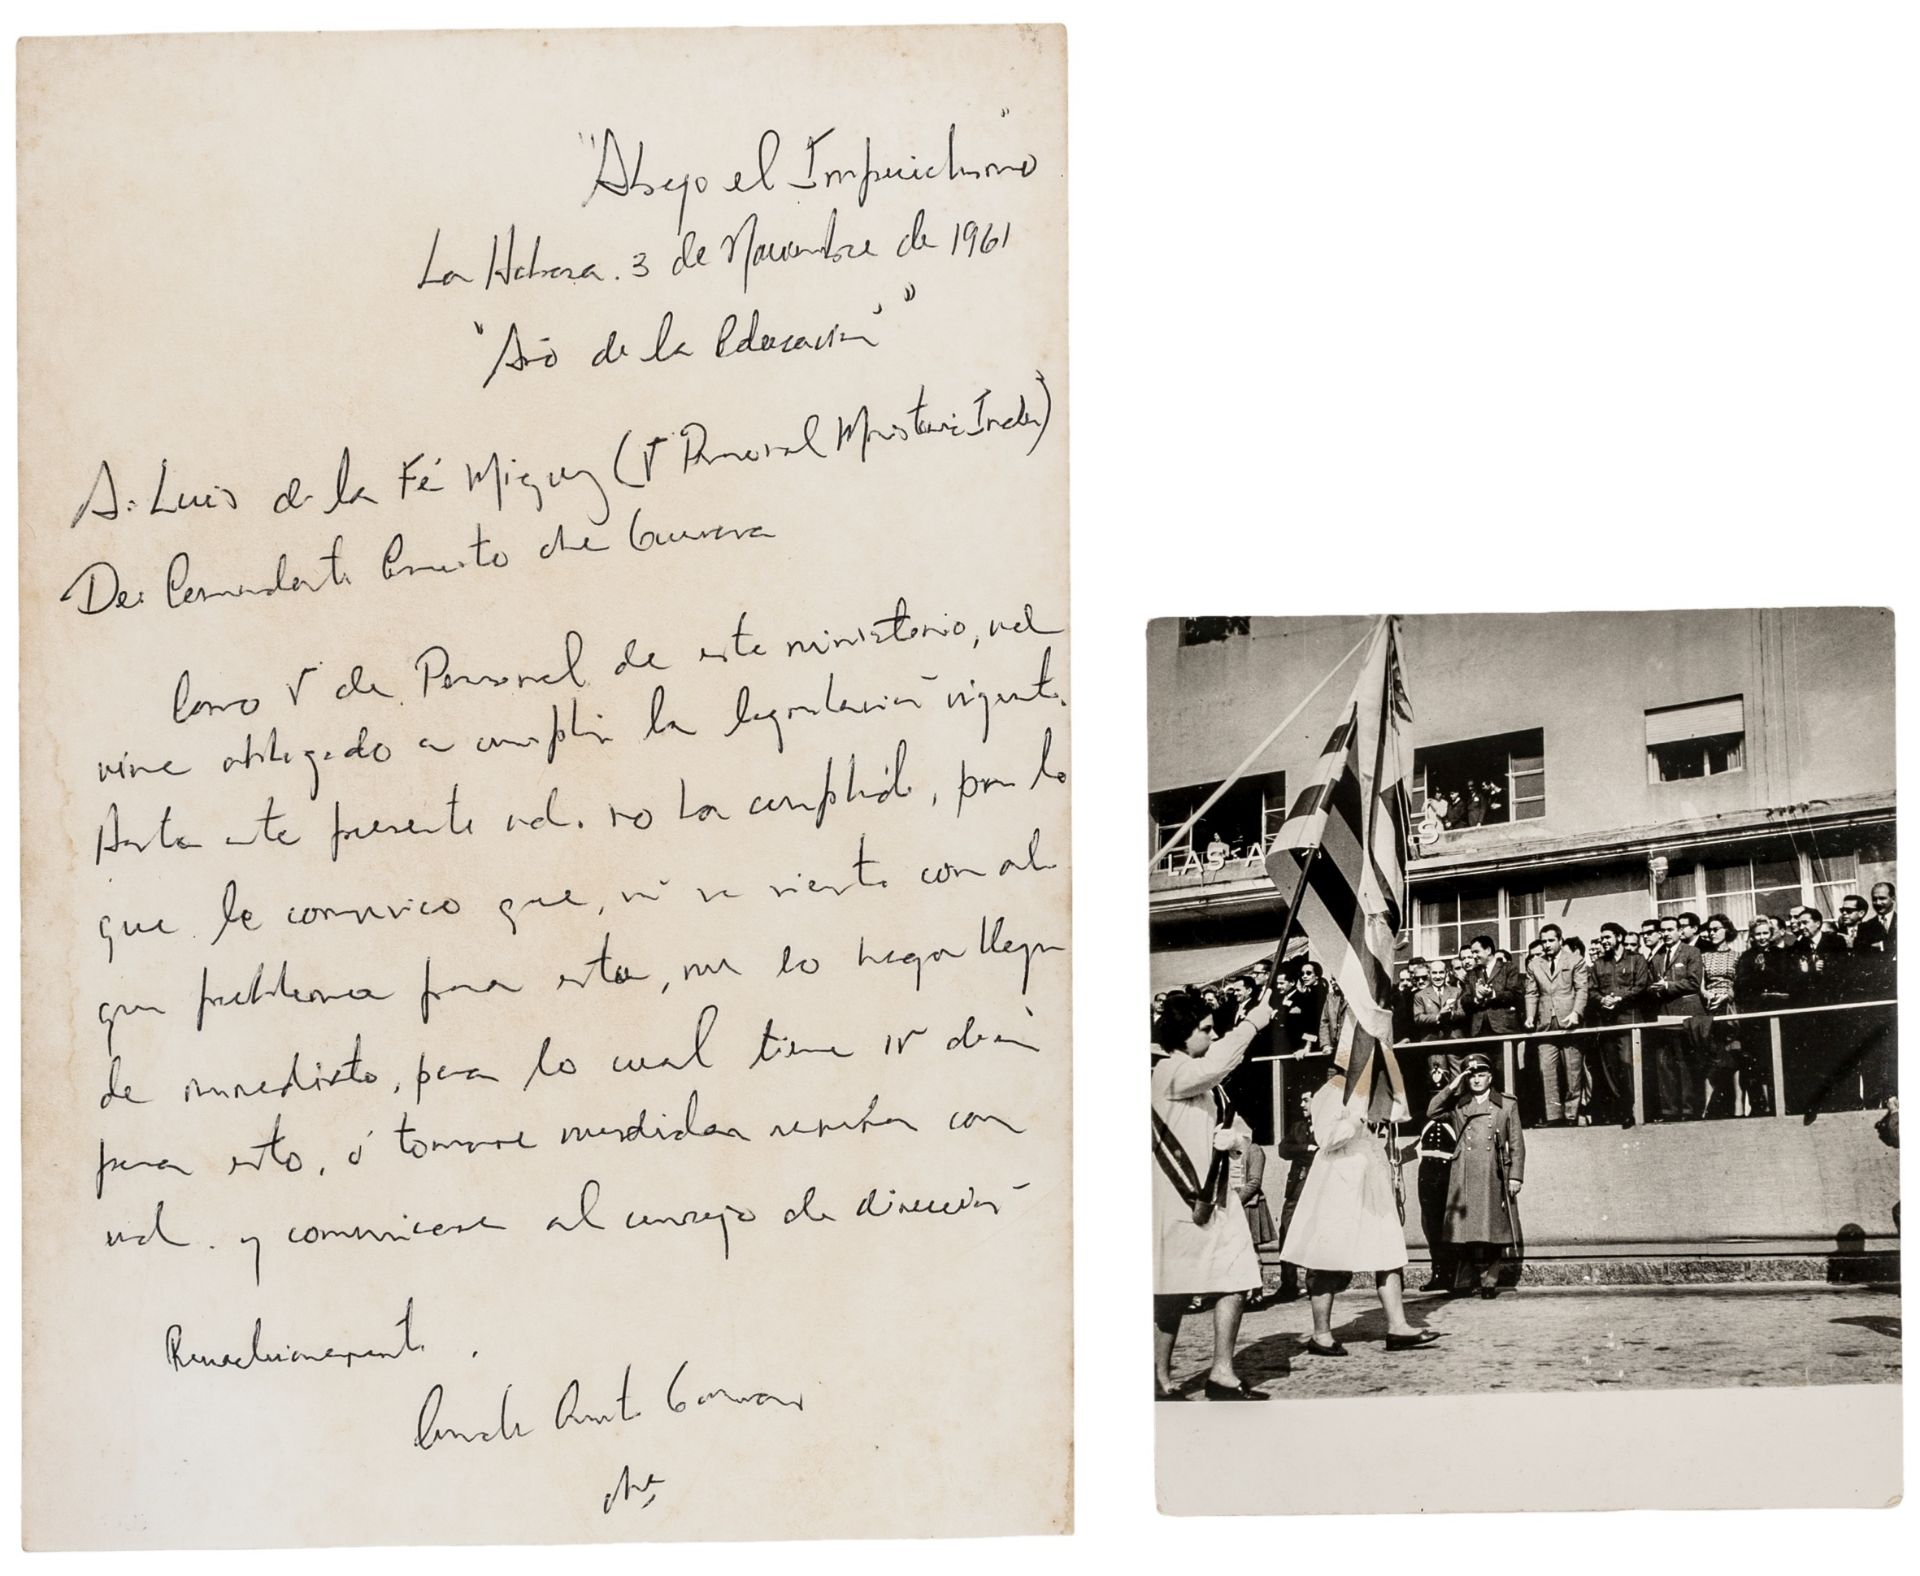 "Abajo el Imperialismo"
La Habana. 3 de Noviembre de 1961
"Año de la Educación"
A: Luis de la Fé Miguez ( Personal Ministerio Inds)
De: Comandante Ernesto che Guevara
Como de Personal de este ministerio, ud
vine obligado a cumplir la legislación vigente.
Asta este presente ud. no ha cumplido, por lo
que le comunico que, si se siente con al-
gun problema para esto, me lo haga llegar
de inmediato, para lo cual tiene
para esto, ó tomare medidas con
ud. y comunicare al consejo de dirección
Revolucionariamente.
Cmdte Ernesto Guevara
che
LAS A
S